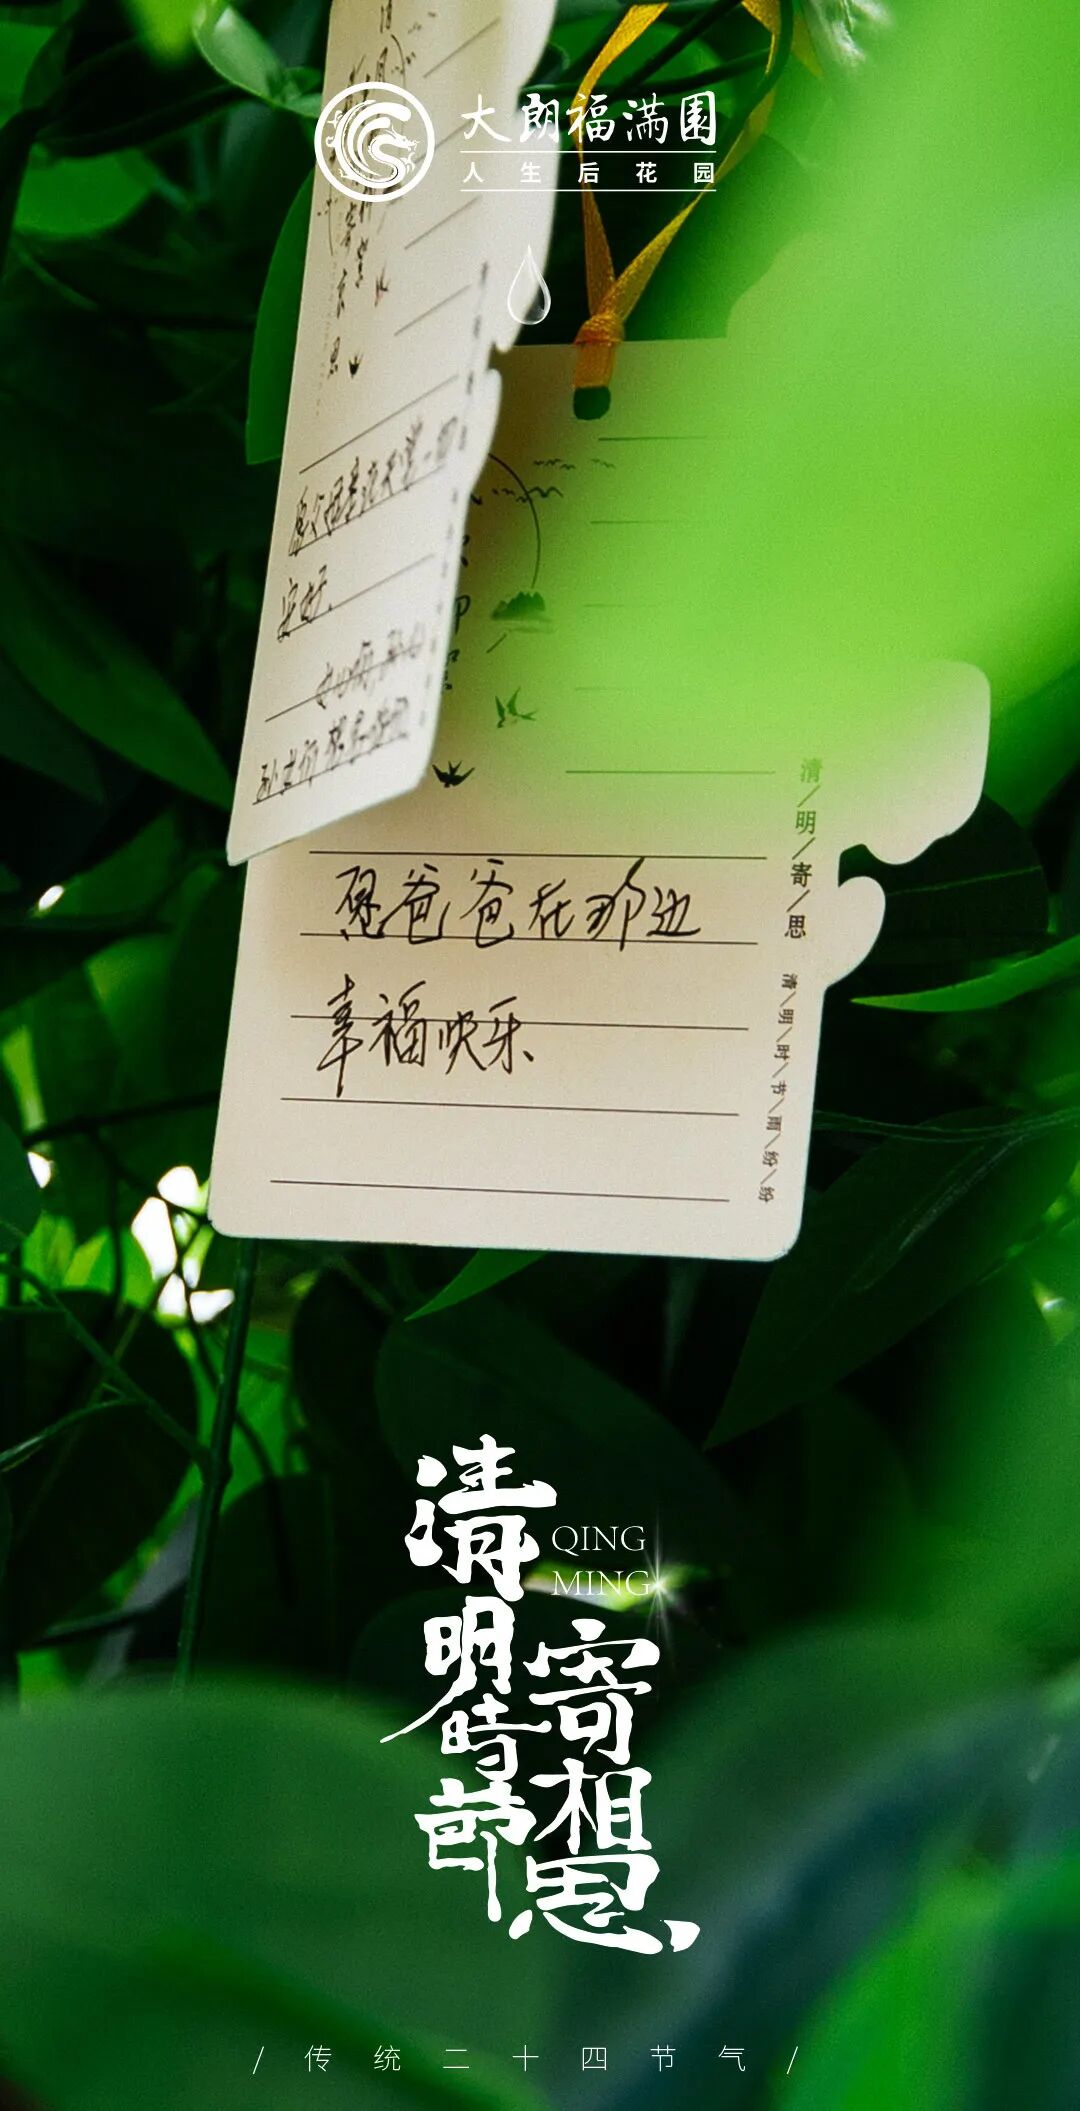 大朗福满園
人生后花园
愿父母亲在天堂一切
安好
愿爸爸在那边
幸福快乐
清/明/寄/思
清/明/时/节/雨/纷/纷
清明時節
QING
MING
寄相思
/ 传统二十四节气 /